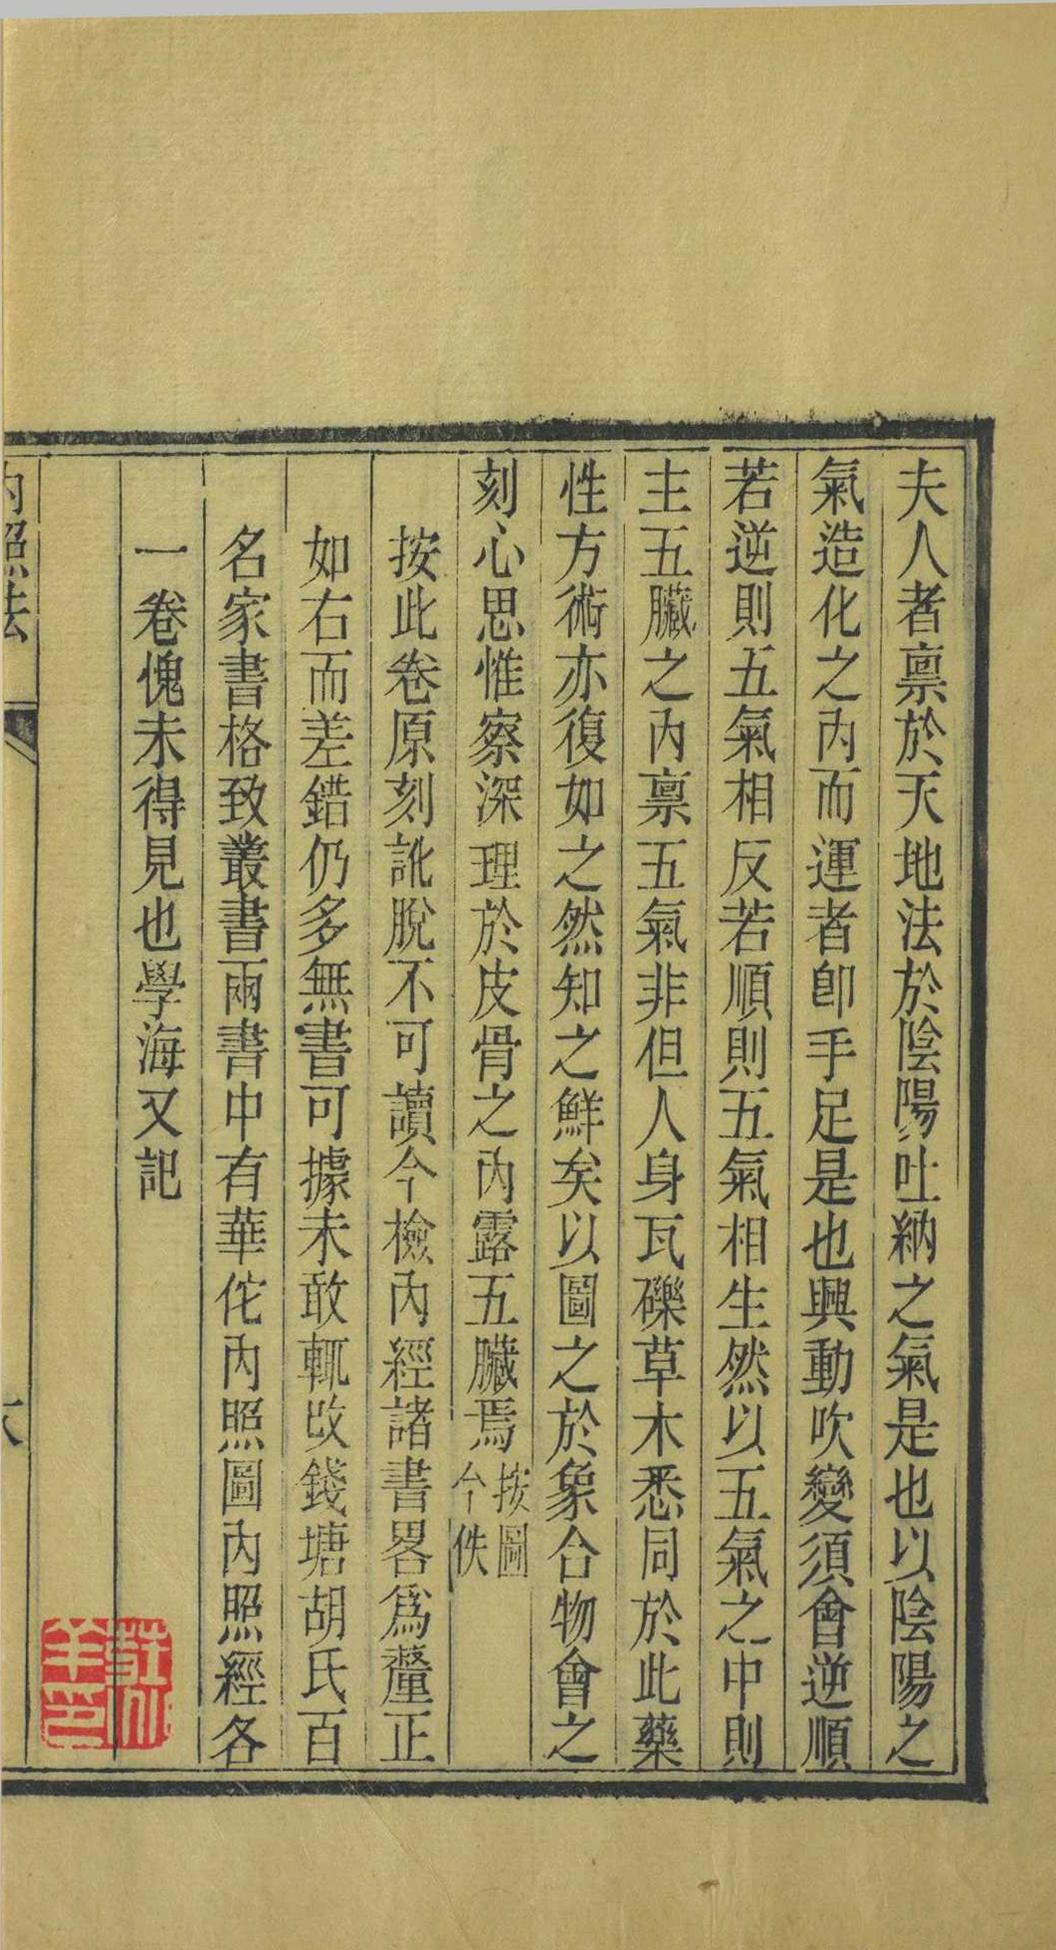 夫人者禀於天地法於陰陽吐納之氣是也以陰陽之
氣造化之內而運者卽手足是也興動吹變須會逆順
若逆則五氣相反若順則五氣相生然以五氣之中則
主五臟之內禀五氣非但人身瓦礫草木悉同於此藥
性方術亦復如之然知之鮮矣以圖之於象合物會之
刻心思惟察深理於皮骨之內露五臟焉按圖今佚
按此卷原刻訛脫不可讀今檢內經諸書畧爲釐正
如右而差錯仍多無書可據未敢輒改錢塘胡氏百
名家書格致叢書兩書中有華佗內照圖內照經各
一卷愧未得見也學海又記
內照法